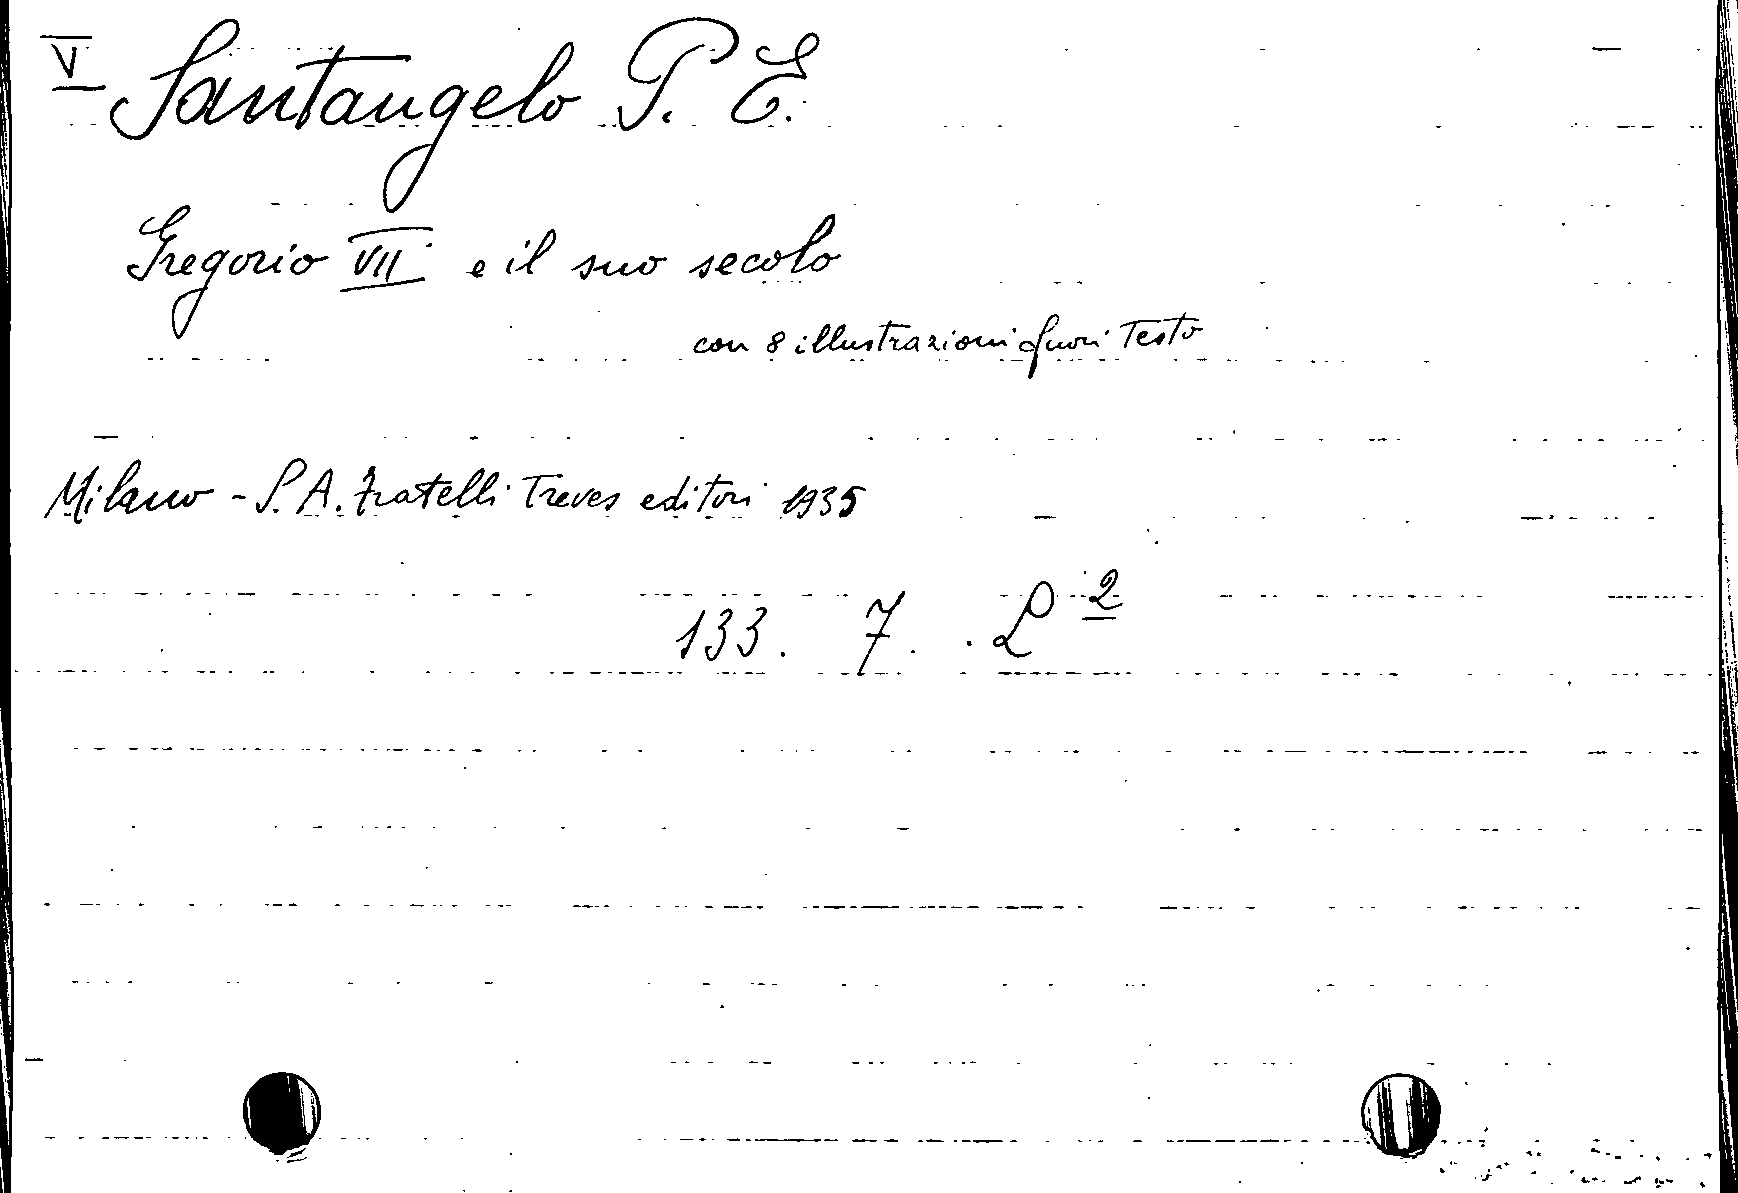 V Santangelo P. E.
Gregorio VII e il suo secolo
con 8 illustrazioni fuori testo
Milano - S. A. Fratelli Treves editori 1935
133. 7. L 2